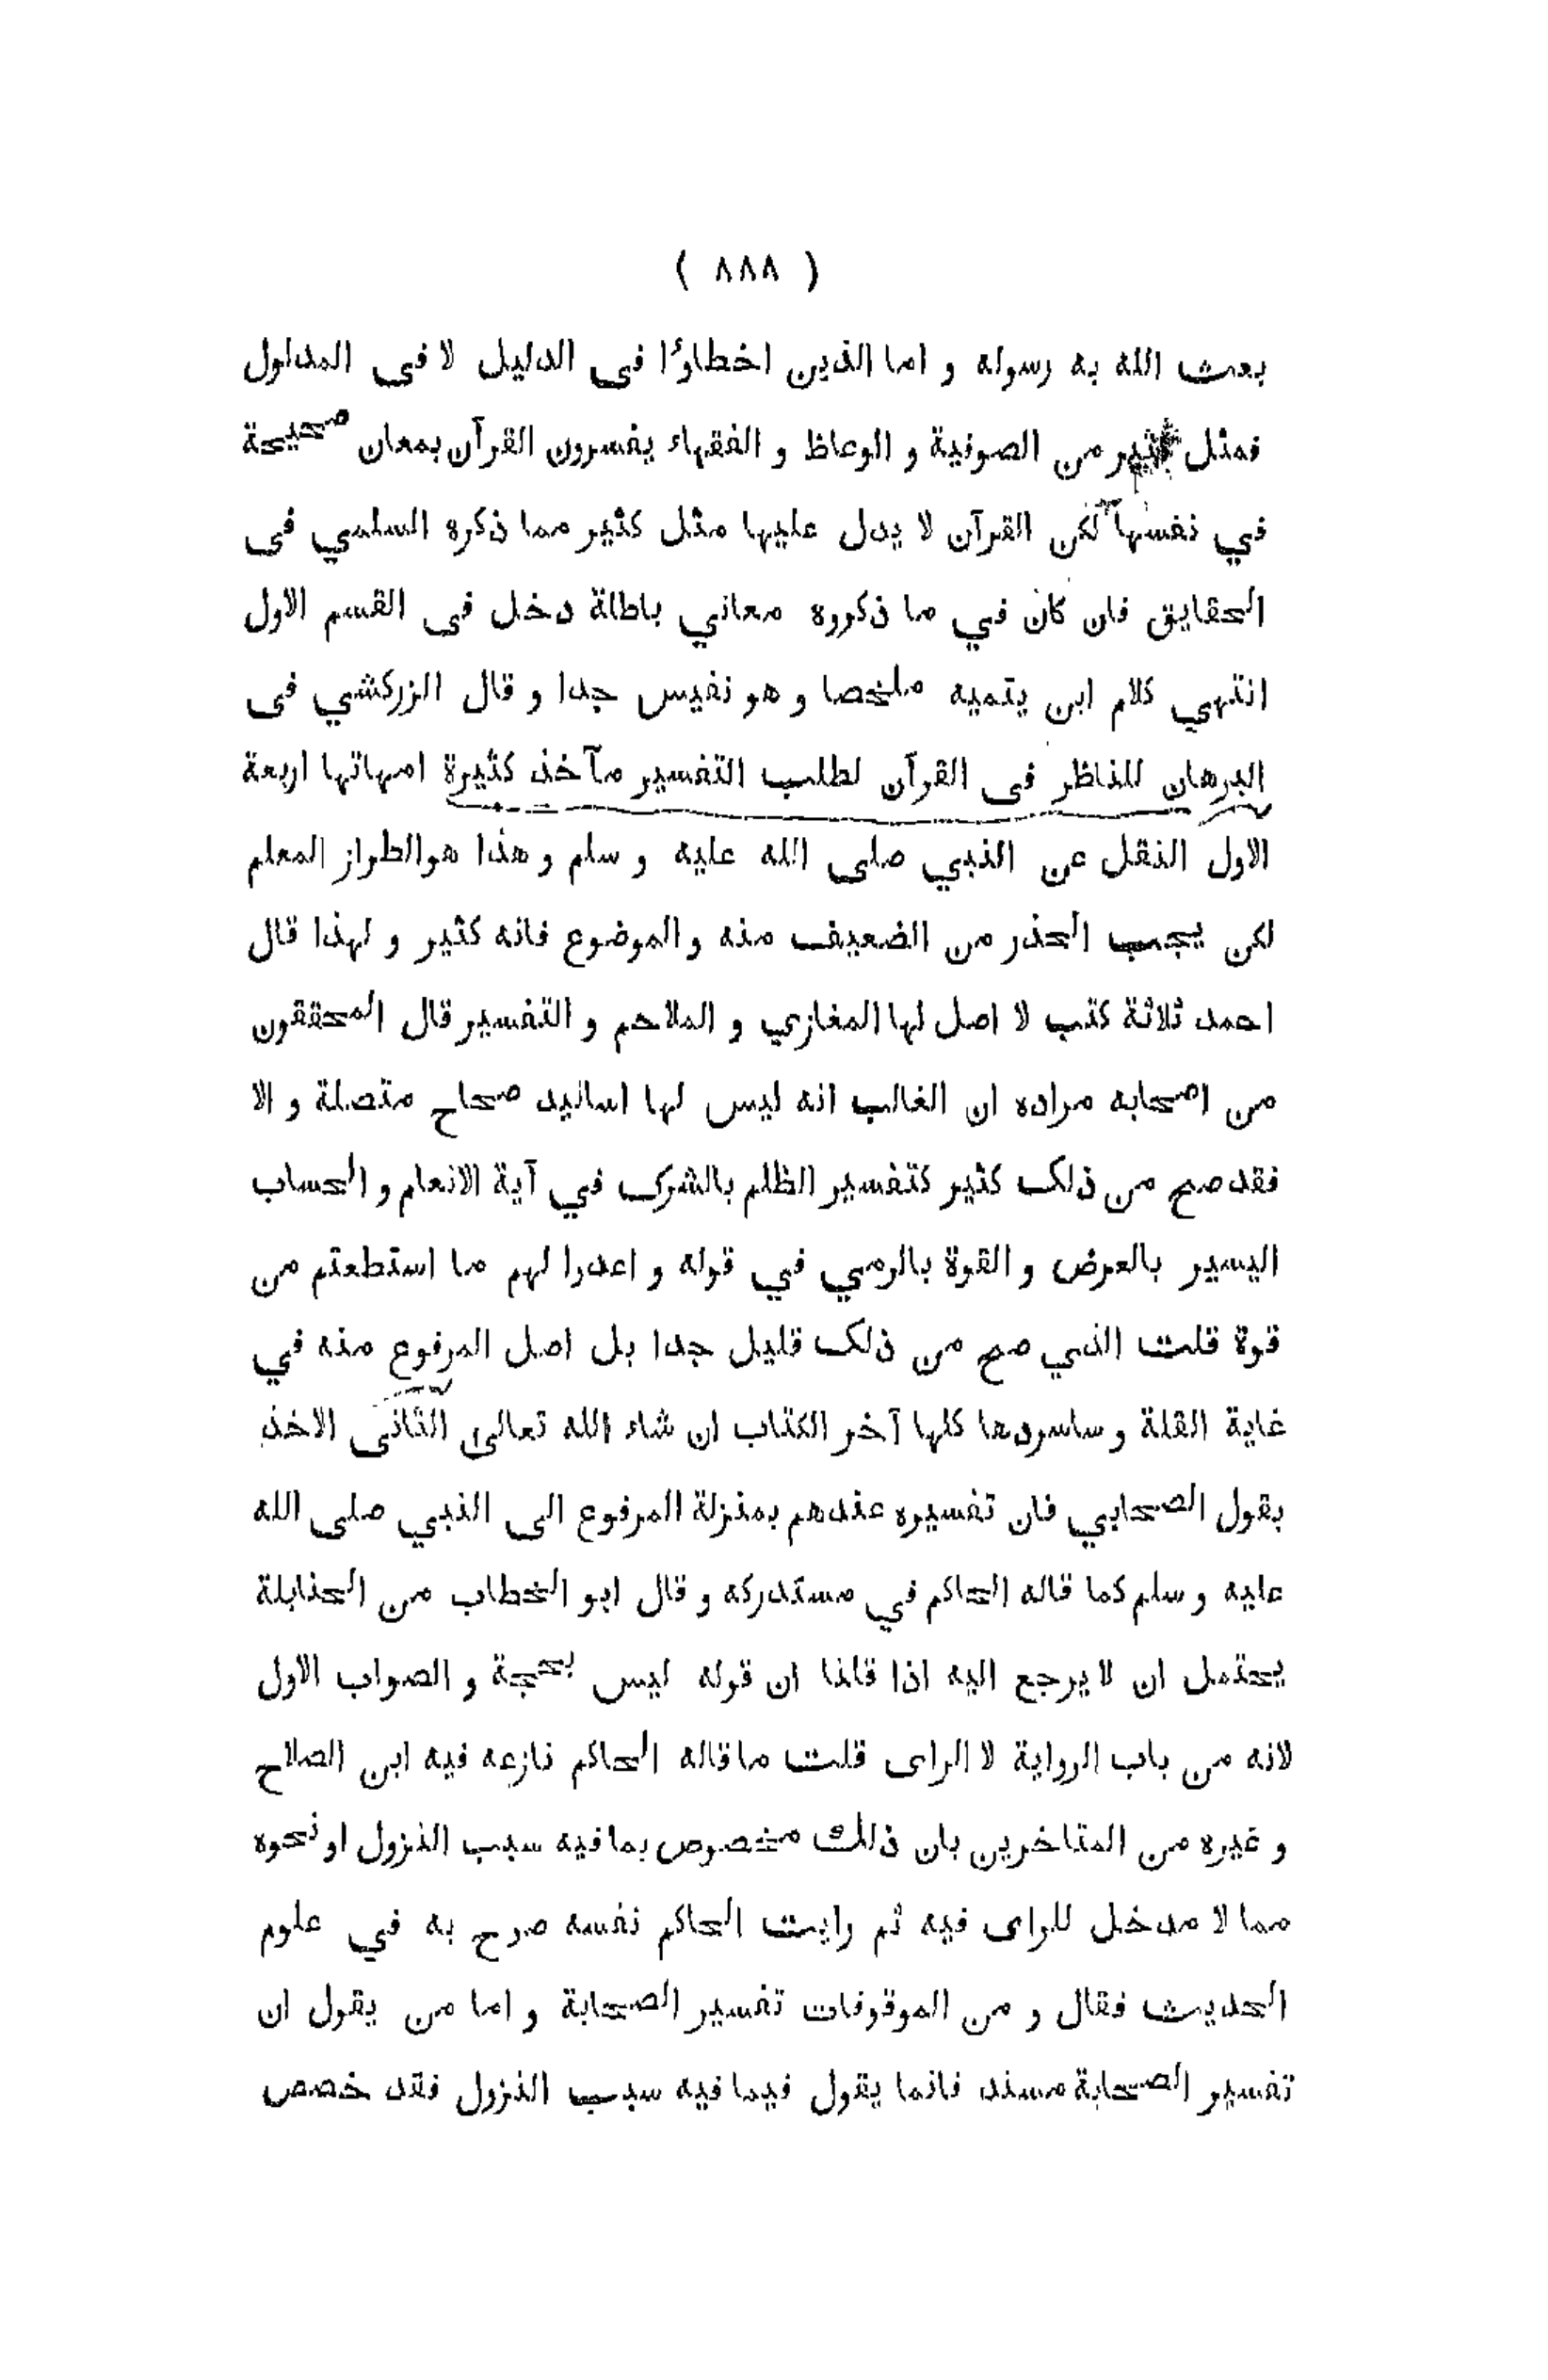 ( ٨٨٨ )
بعث الله به رسوله و اما الذين اخطاوُا فى الدليل لا فى المدلول
فمثل كثير من الصوفية و الوعاظ و الفقهاء يفسرون القرآن بمعان صحيحة
في نفسها لكن القرآن لا يدل عليها مثل كثير مما ذكره السلمي فى
الحقايق فان كان في ما ذكروه معاني باطلة دخل فى القسم الاول
انتهي كلام ابن يتميه ملخصا و هو نفيس جدا و قال الزركشي فى
البرهان للناظر فى القرآن لطلب التفسير مآخذ كثيرة امهاتها اربعة
الاول النقل عن النبي صلى الله عليه و سلم و هذا هوالطراز المعلم
لكن يجب الحذر من الضعيف منه و الموضوع فانه كثير و لهذا قال
احمد ثلاثة كتب لا اصل لها المغازي و الملاحم و التفسير قال المحققون
من اصحابه مراده ان الغالب انه ليس لها اسانيد صحاح متصلة و الا
فقد صح من ذلك كثير كتفسير الظلم بالشرك في آية الانعام و الحساب
اليسير بالعرض و القوة بالرمي في قوله و اعدوا لهم ما استطعتم من
قوة قلت الذي صح من ذلك قليل جدا بل اصل المرفوع منه في
غاية القلة و ساسردها كلها آخر الكتاب ان شاء الله تعالى الثانى الاخذ
بقول الصحابي فان تفسيره عندهم بمنزلة المرفوع الى النبي صلى الله
عليه و سلم كما قاله الحاكم في مستدركه و قال ابو الخطاب من الحنابلة
يحتمل ان لا يرجع اليه اذا قلنا ان قوله ليس بحجة و الصواب الاول
لانه من باب الرواية لا الراى قلت ما قاله الحاكم نازعه فيه ابن الصلاح
و غيره من المتاخرين بان ذلك مخصوص بما فيه سبب النزول او نحوه
مما لا مدخل للراى فيه ثم رايت الحاكم نفسه صرح به في علوم
الحديث فقال و من الموقوفات تفسير الصحابة و اما من يقول ان
تفسير الصحابة مسند فانما يقول فيما فيه سبب النزول فقد خصص